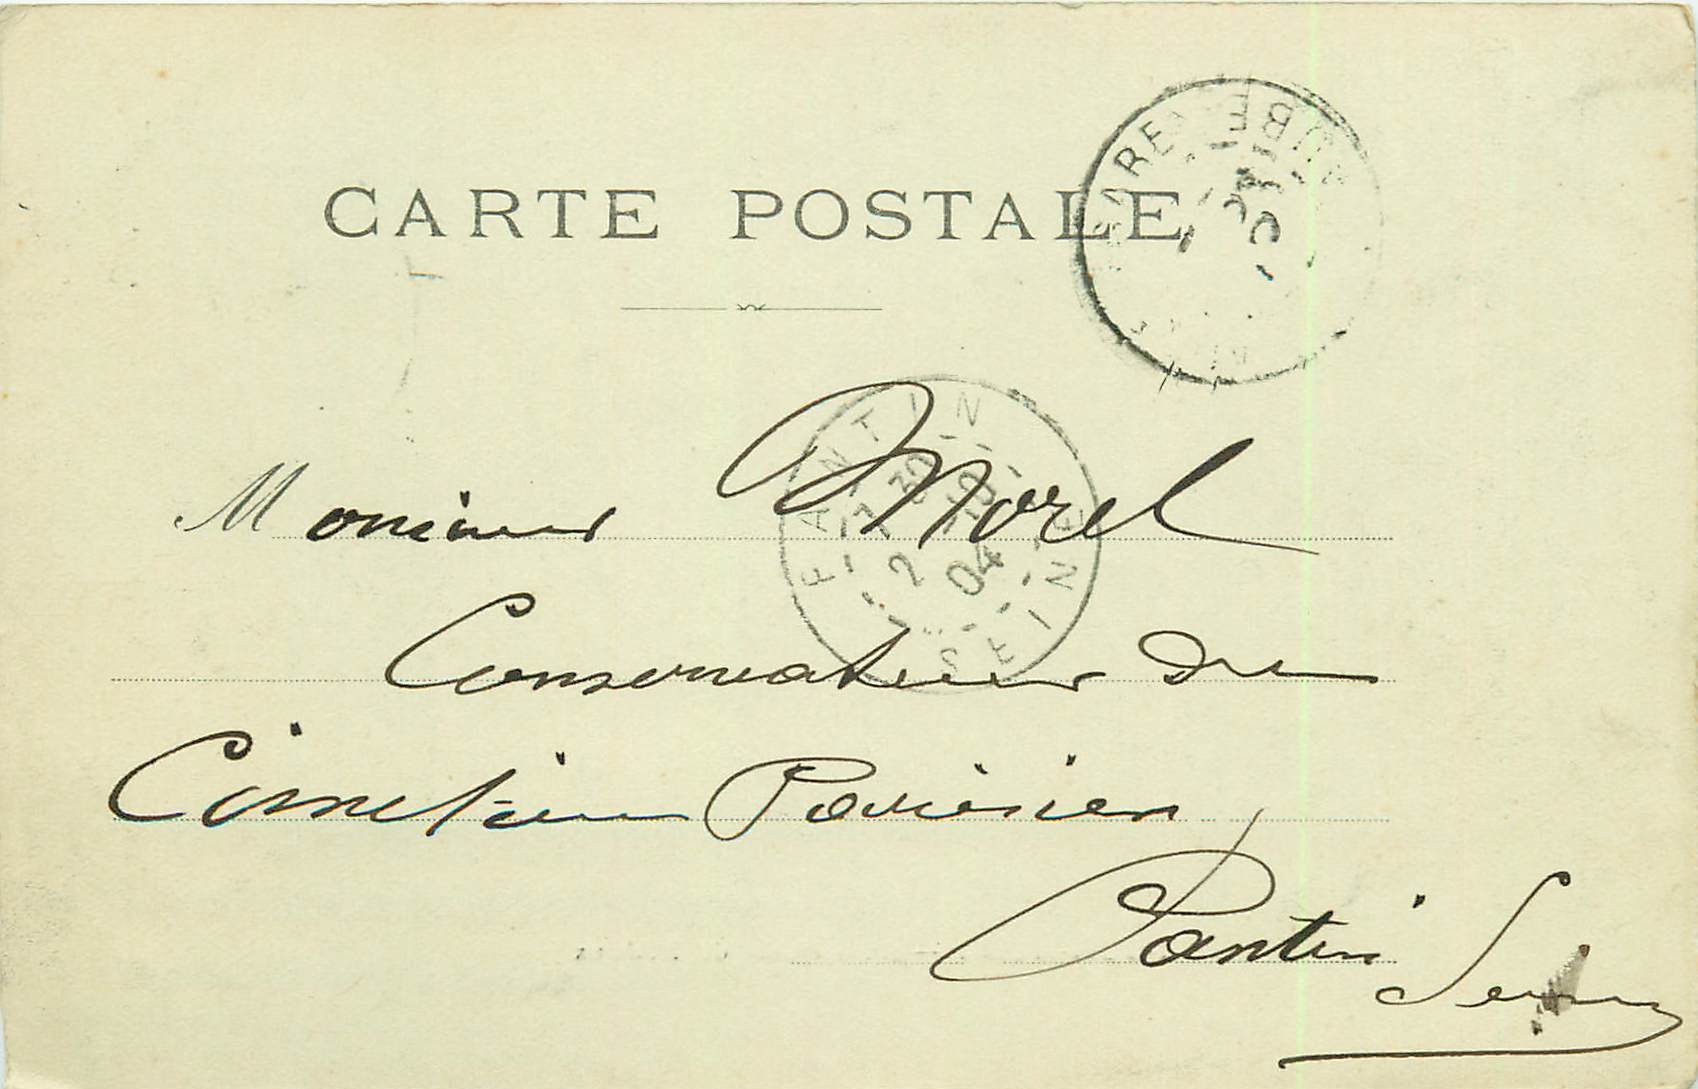 CARTE POSTALE
GARE
AUBE
PANTIN
7 30
2 10
04
SEINE
Monsieur Morel
Conservateur du
Cimetière Parisien
Pantin
Seine